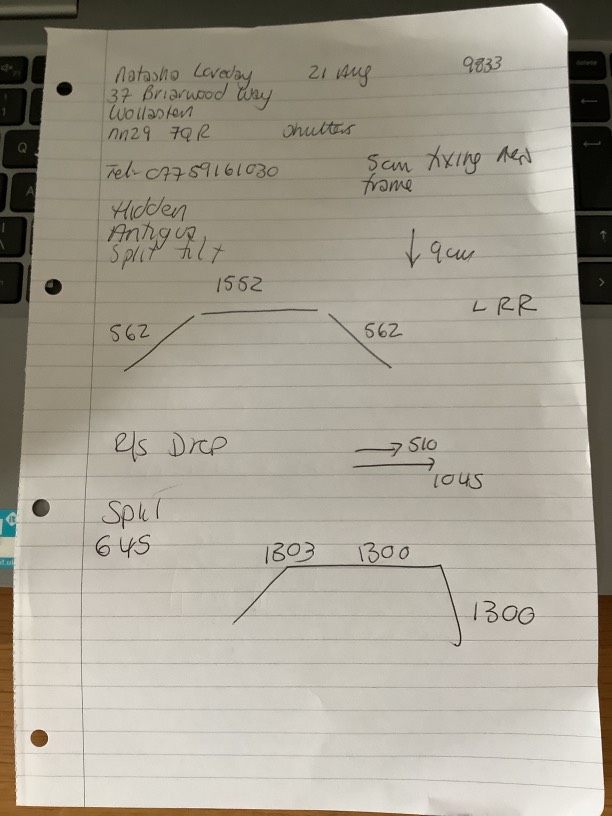 Natasha Loveday 21 Aug 9833
37 Briarwood Way
Wollaston
NN29 7QR Shutters
Tel- 07759161030 5cm fixing new
frame
Hidden
Antigua
Split tilt ↓ 9cm
1552
562 562 L RR
R/s Drop → 510
→ 1045
Split
645
1303 1300
1300